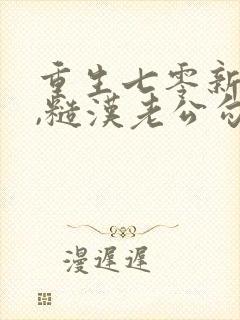 重生七零新
,糙汉老公勾
漫遲遲